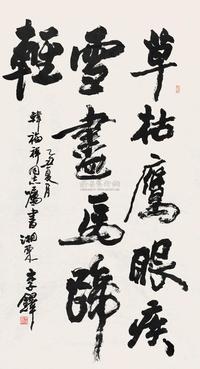 草枯鷹眼疾
雪盡馬蹄
輕
乙丑夏月
韓福祥同志屬書 湘東李鐸